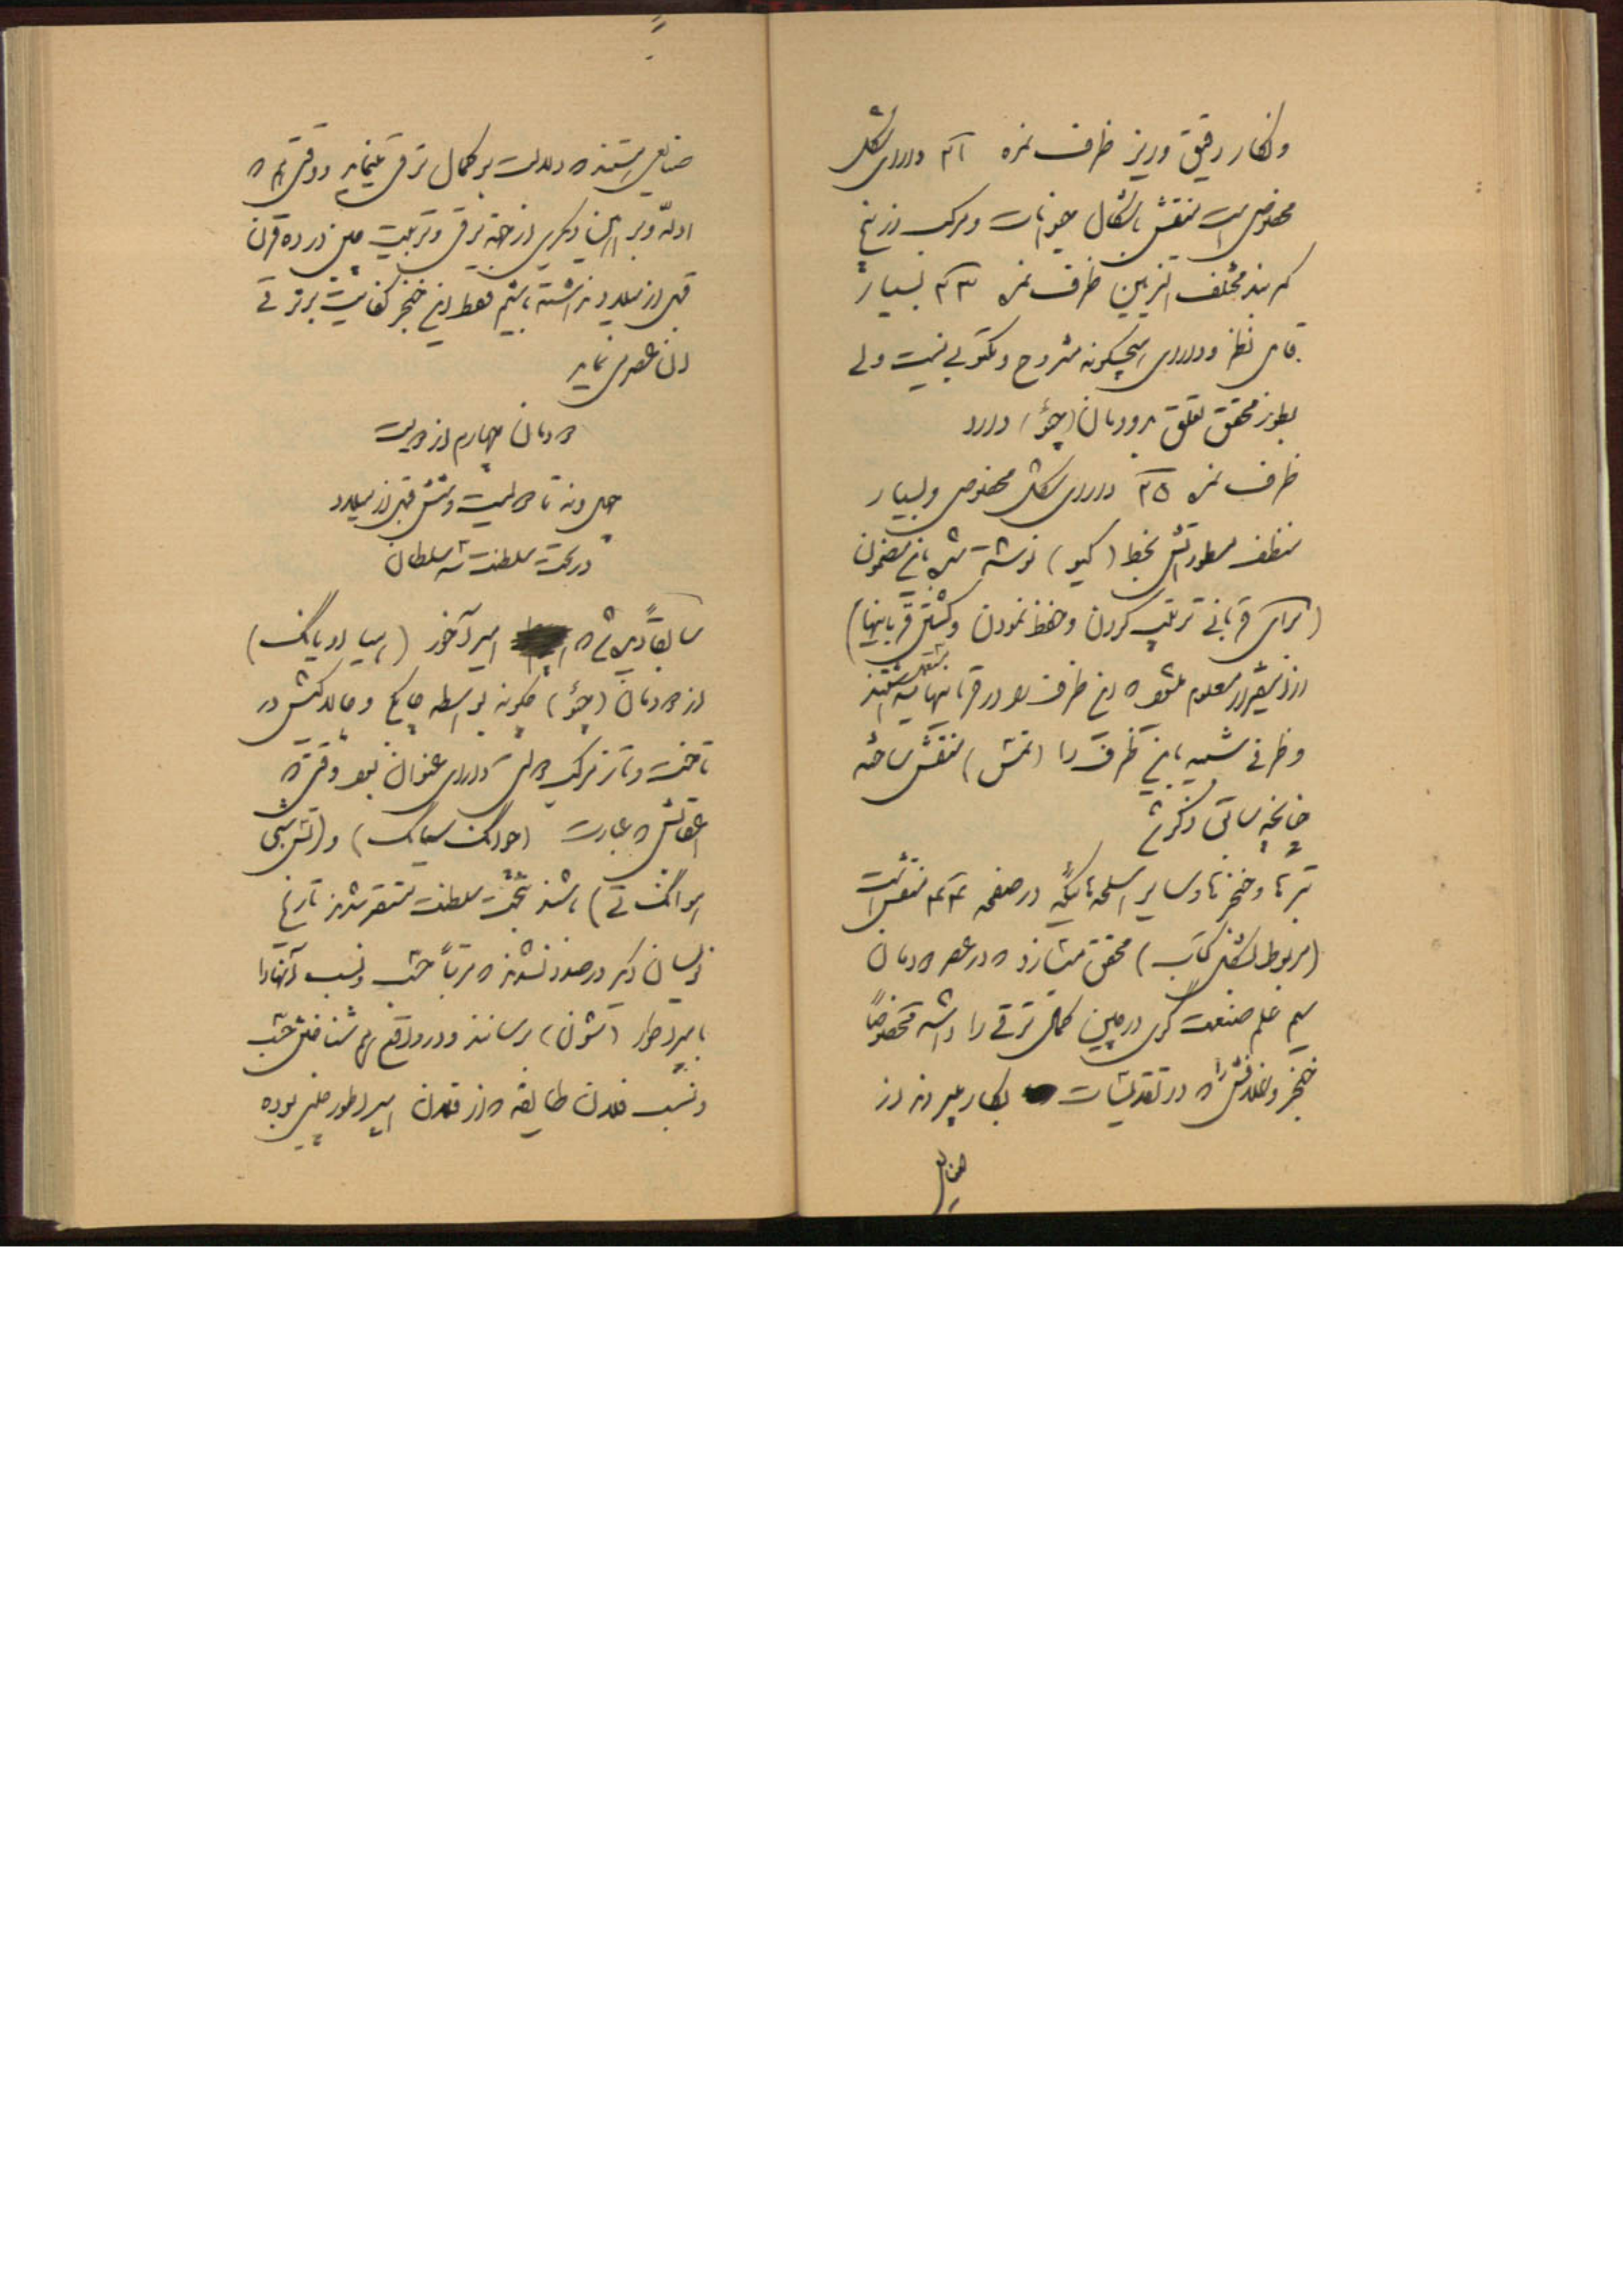 و بکار دقیق و ریز ظرف نمره ۴۱ دارای شکل
مخصوص است منقش باشکال حیوانات و مرکب از پنج
کمربند مختلف التزیین ظرف نمره ۴۳ بسیار
قابل نظر و دارای هیچگونه مشروح و مکتوبی نیست ولی
بطور محقق تعلق بدودمان (چئو) دارد
ظرف نمره ۴۵ دارای شکل مخصوص و بسیار
منظف سطورتش بخط (کیو) نوشته شده باین مضمون
(برای قربانی ترتیب کردن و حفظ نمودن و کشتن قربانیها)
از اینقرار معلوم میشود که این ظرف را در قربانیها
و ظرفی شبیه باین ظرف را (تمش) منقش ساخته
چنانچه سابق ذکر شد
تبرها و خنجرها و سایر اسلحه هائیکه در صفحه ۴۴ منقش است
(مربوط بشکل کتاب) محقق میسازد که در عصر دودمان
سیم علم صنعت گری در چین کمال ترقی را داشته مخصوصاً
خنجر و غلافش را که در تقدیسات بکار میبردند از
صنایع
صنایعی هستند که دلالت بر کمال ترقی مینماید و وقتی هم که
ادله و براهین دیگری از جهة ترقی و تربیت چین در ده قرن
قبل از میلاد نداشته باشیم فقط این خنجر کفایت بر ترقی
آن عصر می نماید
دودمان چهارم از دویست
چهل و نه تا دویست و شش قبل از میلاد
در تحت سلطنت سه سلطان
سابقاً دیده شد که امیر آخور (هیا او یانگ)
از دودمان (چئو) چگونه بواسطه چابکی و چالاکیش در
تاخت و تاز مرکب دولتی دارای عنوان بود وقتی که
اعقابش که عبارت (حوانگ سیانگ) و (تش شی
هوانگ تی) باشند بتخت سلطنت مستقر شدند تاریخ
نویسان دیگر درصدد نشدند که مرتباً حسب و نسب آنها را
بامپراطور (شون) برسانند و در واقع هم شناختن حسب
و نسب فلان طایفه که از فلان امپراطور چین بوده